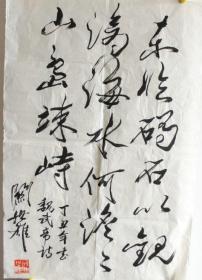 东临碣石以观
沧海水何澹々
山岛竦峙
丁丑年书
魏武帝诗